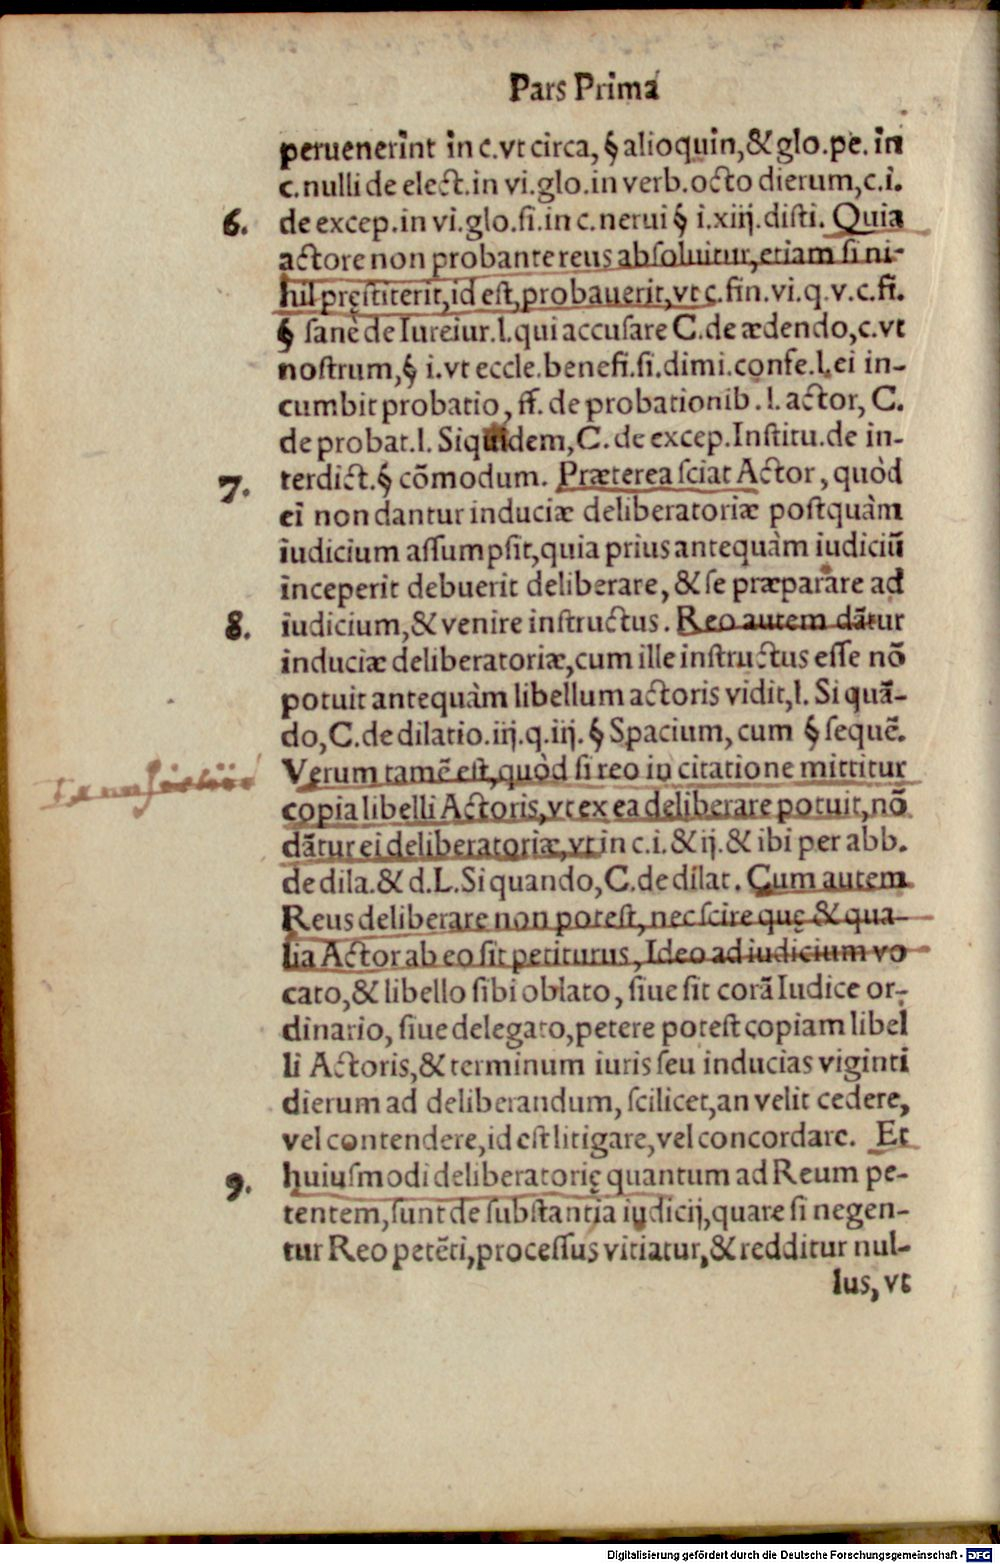 Pars Prima
peruenerint in c.vt circa, § alioquin, & glo.pe. in
c.nulli de elect.in vi.glo.in verb.octo dierum,c.i.
6. de excep.in vi.glo.fi.in c.nerui § i.xiij.disti. Quia
actore non probante reus absoluitur,etiam si ni-
hil pręstiterit,id est,probauerit,vt c.fin.vi.q.v.c.fi.
§ sanè de Iureiur.l.qui accusare C.de ædendo,c.vt
nostrum,§ i.vt eccle.benefi.si.dimi.confe.l.ei in-
cumbit probatio, ff. de probationib.l.actor, C.
de probat.l. Siquidem,C.de excep.Institu.de in-
7. terdict.§ cõmodum. Præterea sciat Actor, quòd
ei non dantur induciæ deliberatoriæ postquàm
iudicium assumpsit,quia prius antequàm iudiciũ
inceperit debuerit deliberare, & se præparare ad
8. iudicium,& venire instructus. Reo autem dãtur
induciæ deliberatoriæ,cum ille instructus esse nõ
potuit antequàm libellum actoris vidit,l. Si quã-
do,C.de dilatio.iij.q.iij.§ Spacium, cum § sequẽ.
Verum tamẽ est,quòd si reo in citatione mittitur
copia libelli Actoris,vt ex ea deliberare potuit,nõ
dãtur ei deliberatoriæ,vt in c.i.& ij.& ibi per abb.
de dila.& d.L.Si quando,C.de dilat. Cum autem
Reus deliberare non potest, nec scire quę & qua-
lia Actor ab eo sit petiturus, Ideo ad iudicium vo
cato,& libello sibi oblato, siue sit corã Iudice or-
dinario, siue delegato,petere potest copiam libel
li Actoris,& terminum iuris seu inducias viginti
dierum ad deliberandum, scilicet,an velit cedere,
vel contendere,id est litigare,vel concordare. Et
9. huiusmodi deliberatorię quantum ad Reum pe-
tentem,sunt de substantia iudicij,quare si negen-
tur Reo petẽti,processus vitiatur,& redditur nul-
lus, vt
Digitalisierung gefördert durch die Deutsche Forschungsgemeinschaft - DFG